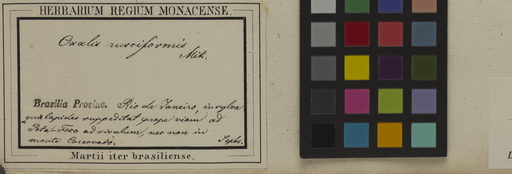 HERBARIUM REGIUM MONACENSE.
Oxalis rusciformis
Mik.
Brasilia Provinc. Rio de Janeiro, in sylva
quae lapides suppeditat prope viam ad
ad rivulum, nec non in
monte Corcovado. Septbr.
Martii iter brasiliense.